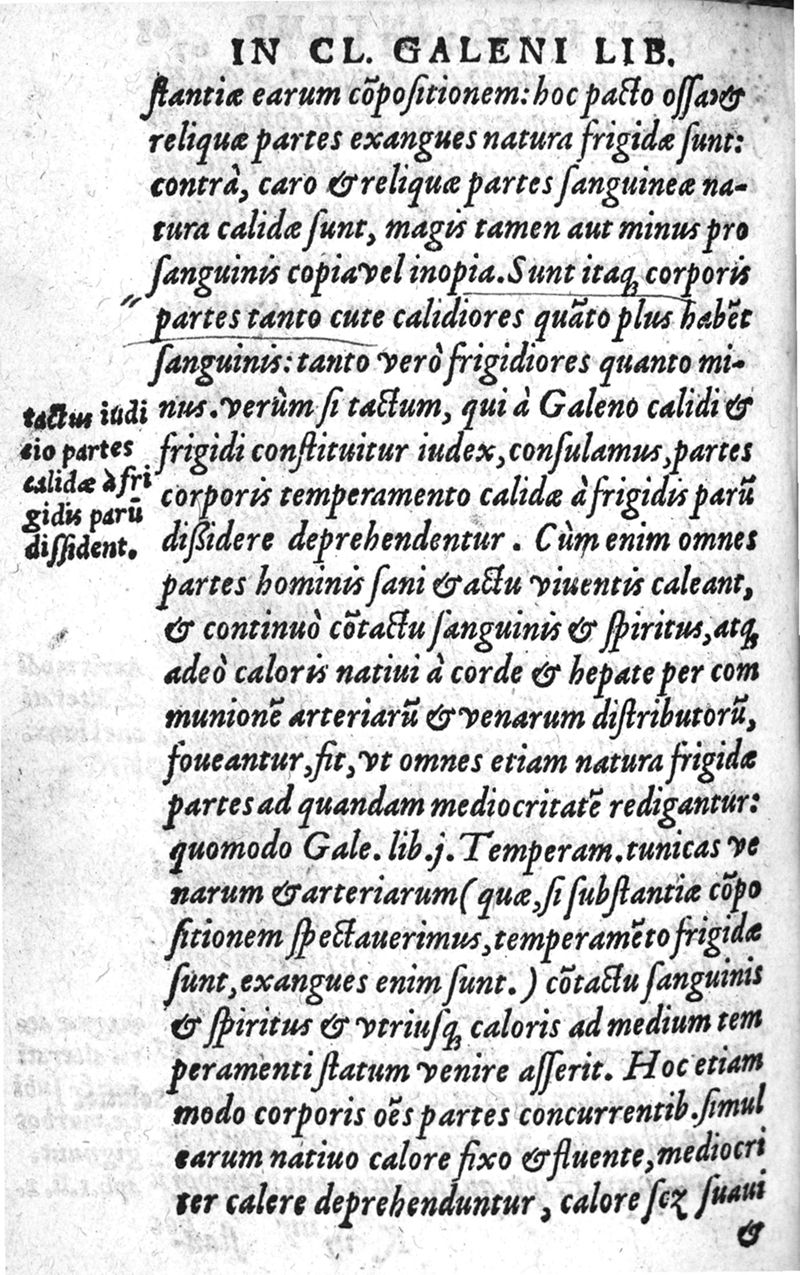 IN CL. GALENI LIB.
stantiæ earum cõpositionem: hoc pacto ossa &
reliquæ partes exangues natura frigidæ sunt:
contrà, caro & reliquæ partes sanguineæ na-
tura calidæ sunt, magis tamen aut minus pro
sanguinis copia vel inopia. Sunt itaq; corporis
partes tanto cute calidiores quãto plus habẽt
sanguinis: tanto verò frigidiores quanto mi-
nus. verùm si tactum, qui à Galeno calidi &
frigidi constituitur iudex, consulamus, partes
corporis temperamento calidæ à frigidis parũ
dissidere deprehendentur. Cùm enim omnes
partes hominis sani & actu viuentis caleant,
& continuò cõtactu sanguinis & spiritus, atq;
adeò caloris natiui à corde & hepate per com
munionẽ arteriarũ & venarum distributorũ,
foueantur, fit, vt omnes etiam natura frigidæ
partes ad quandam mediocritatẽ redigantur:
quomodo Gale. lib. j. Temperam. tunicas ve
narum & arteriarum ( quæ, si substantiæ cõpo
sitionem spectauerimus, temperamẽto frigidæ
sunt, exangues enim sunt. ) cõtactu sanguinis
& spiritus & vtriusq; caloris ad medium tem
peramenti statum venire asserit. Hoc etiam
modo corporis oẽs partes concurrentib. simul
earum natiuo calore fixo & fluente, mediocri
ter calere deprehenduntur, calore scz suaui
&
tactus iudi
cio partes
calidæ à fri
gidis parũ
dissident.